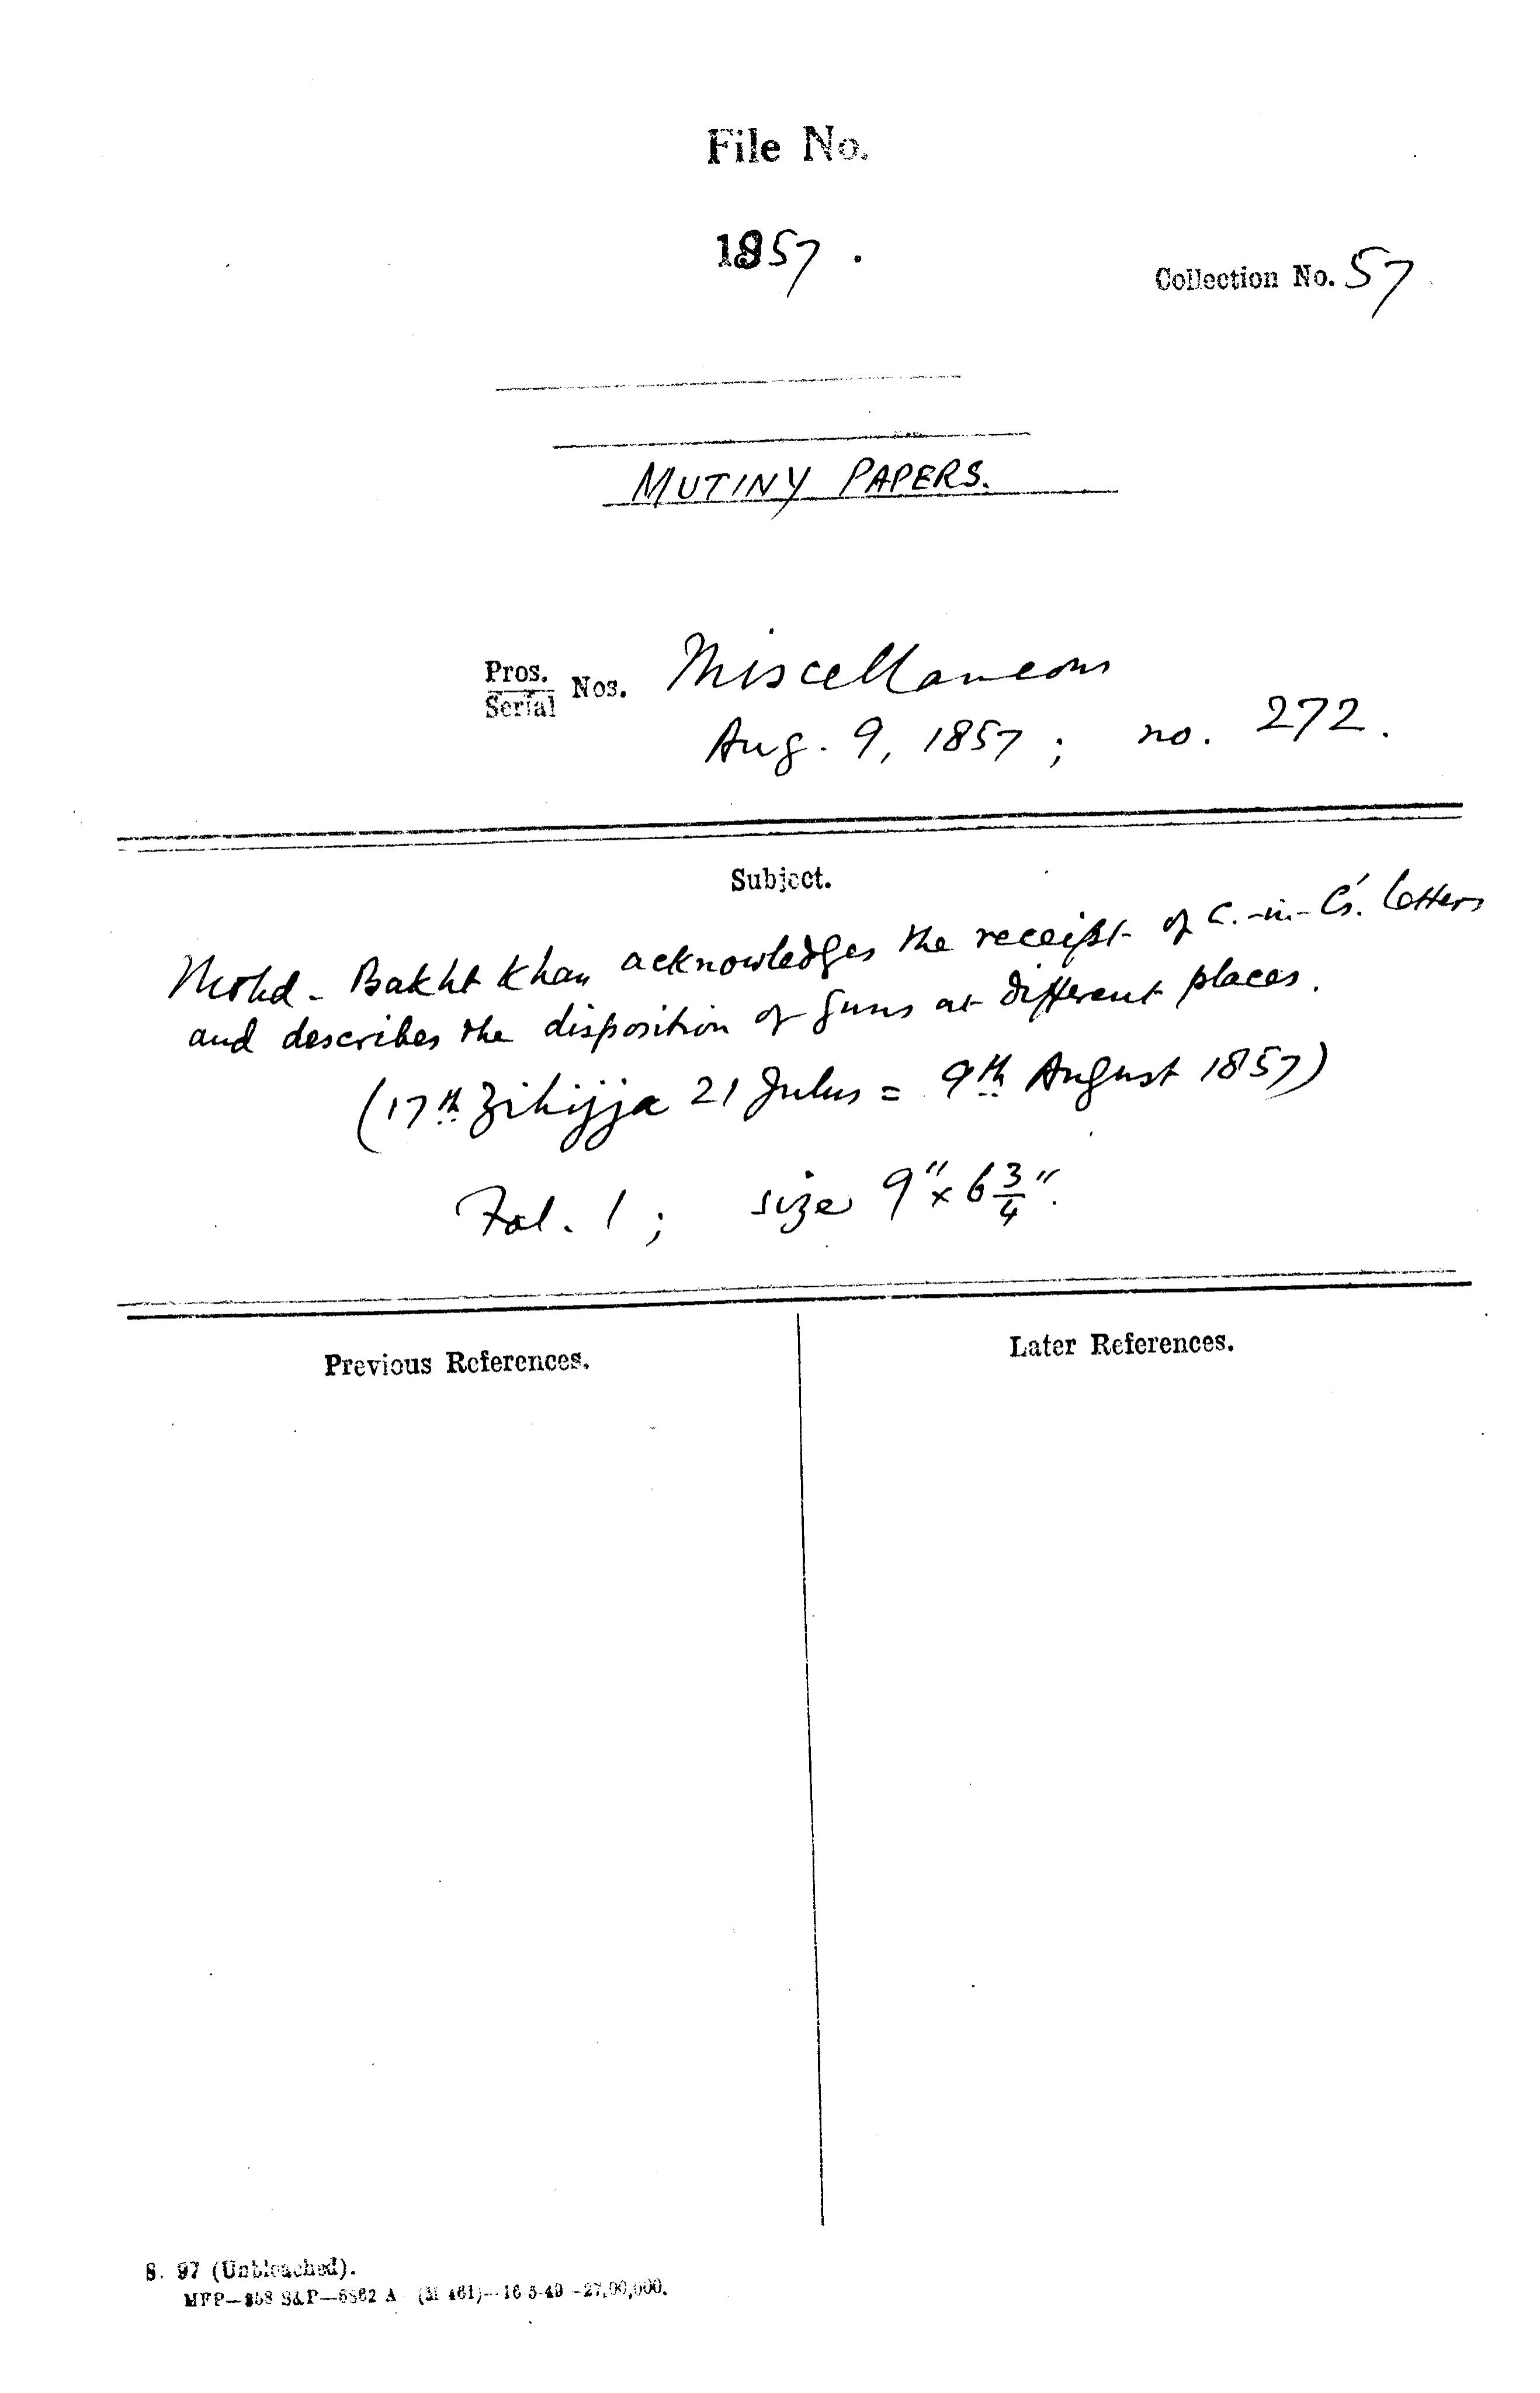 File No.
1857.
Collection No. 57
MUTINY PAPERS.
Pros. Serial Nos. Miscellaneous
Aug. 9, 1857; no. 272.
Subject.
Mohd. Bakht Khan acknowledges the receipt of C.-in-C's. letters
and describes the disposition of guns at different places.
(17th Zihijja 21 Julus = 9th August 1857)
Fol. 1; size 9" x 6 3/4".
Previous References.
Later References.
S. 97 (Unbleached).
MFP—858 S&P—6862 A (M 461)—16-5-49—27,00,000.